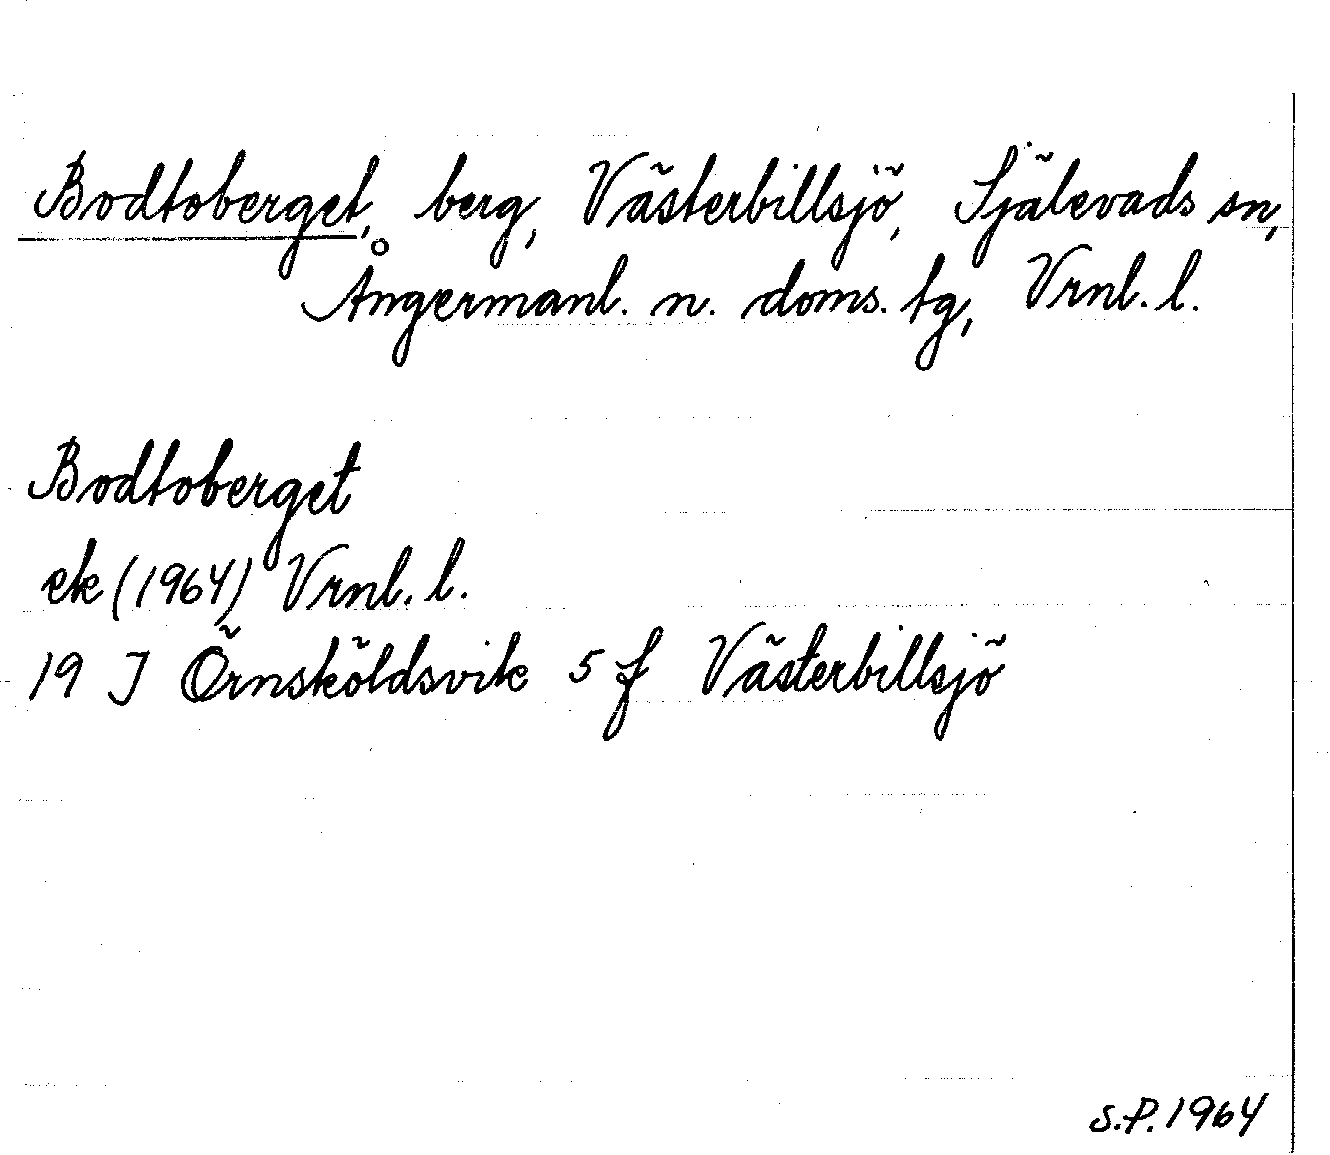 Bodtoberget, berg, Västerbillsjö, Själevads sn,
Ångermanl. n. doms. tg, Vrnl. l.
Bodtoberget
ek (1964) Vrnl. l.
19 J Örnsköldsvik 5 f Västerbillsjö
S.P. 1964